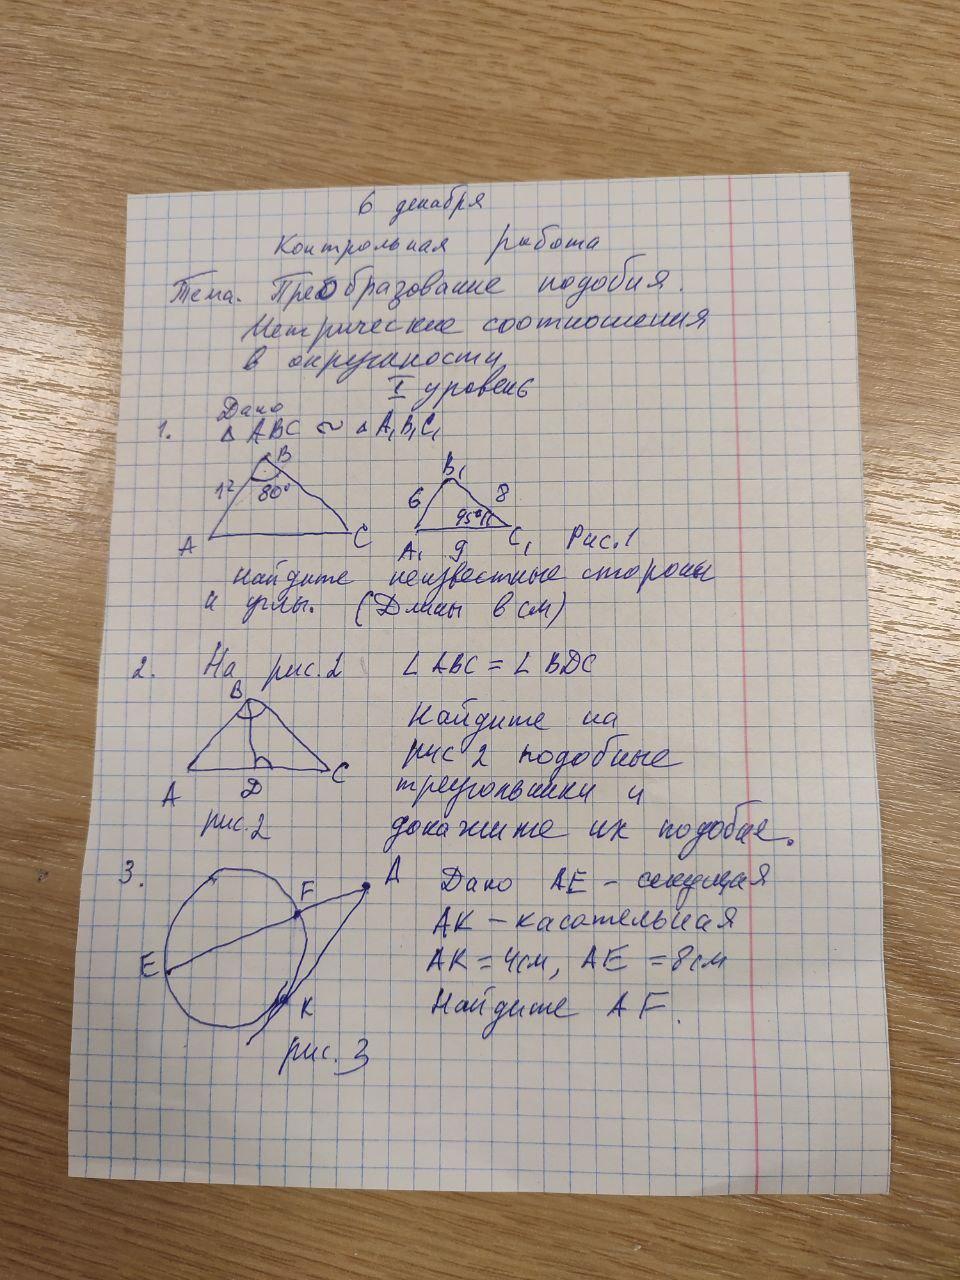 6 декабря
Контрольная работа
Тема. Преобразование подобия.
Метрические соотношения
в окружности
I уровень
Дано
1. △ ABC ~ △ A₁B₁C₁
B
12 80°
A C
B₁
6 8
95°
A₁ 9 C₁ Рис.1
Найдите неизвестные стороны
и углы. (Длины в см)
2. На рис.2 ∠ ABC = ∠ BDC
B
A D C
рис.2
Найдите на
рис 2 подобные
треугольники и
докажите их подобие.
3.
F A
E
K
рис. 3
Дано AE – секущая
AK – касательная
AK = 4см, AE = 8см
Найдите AF.